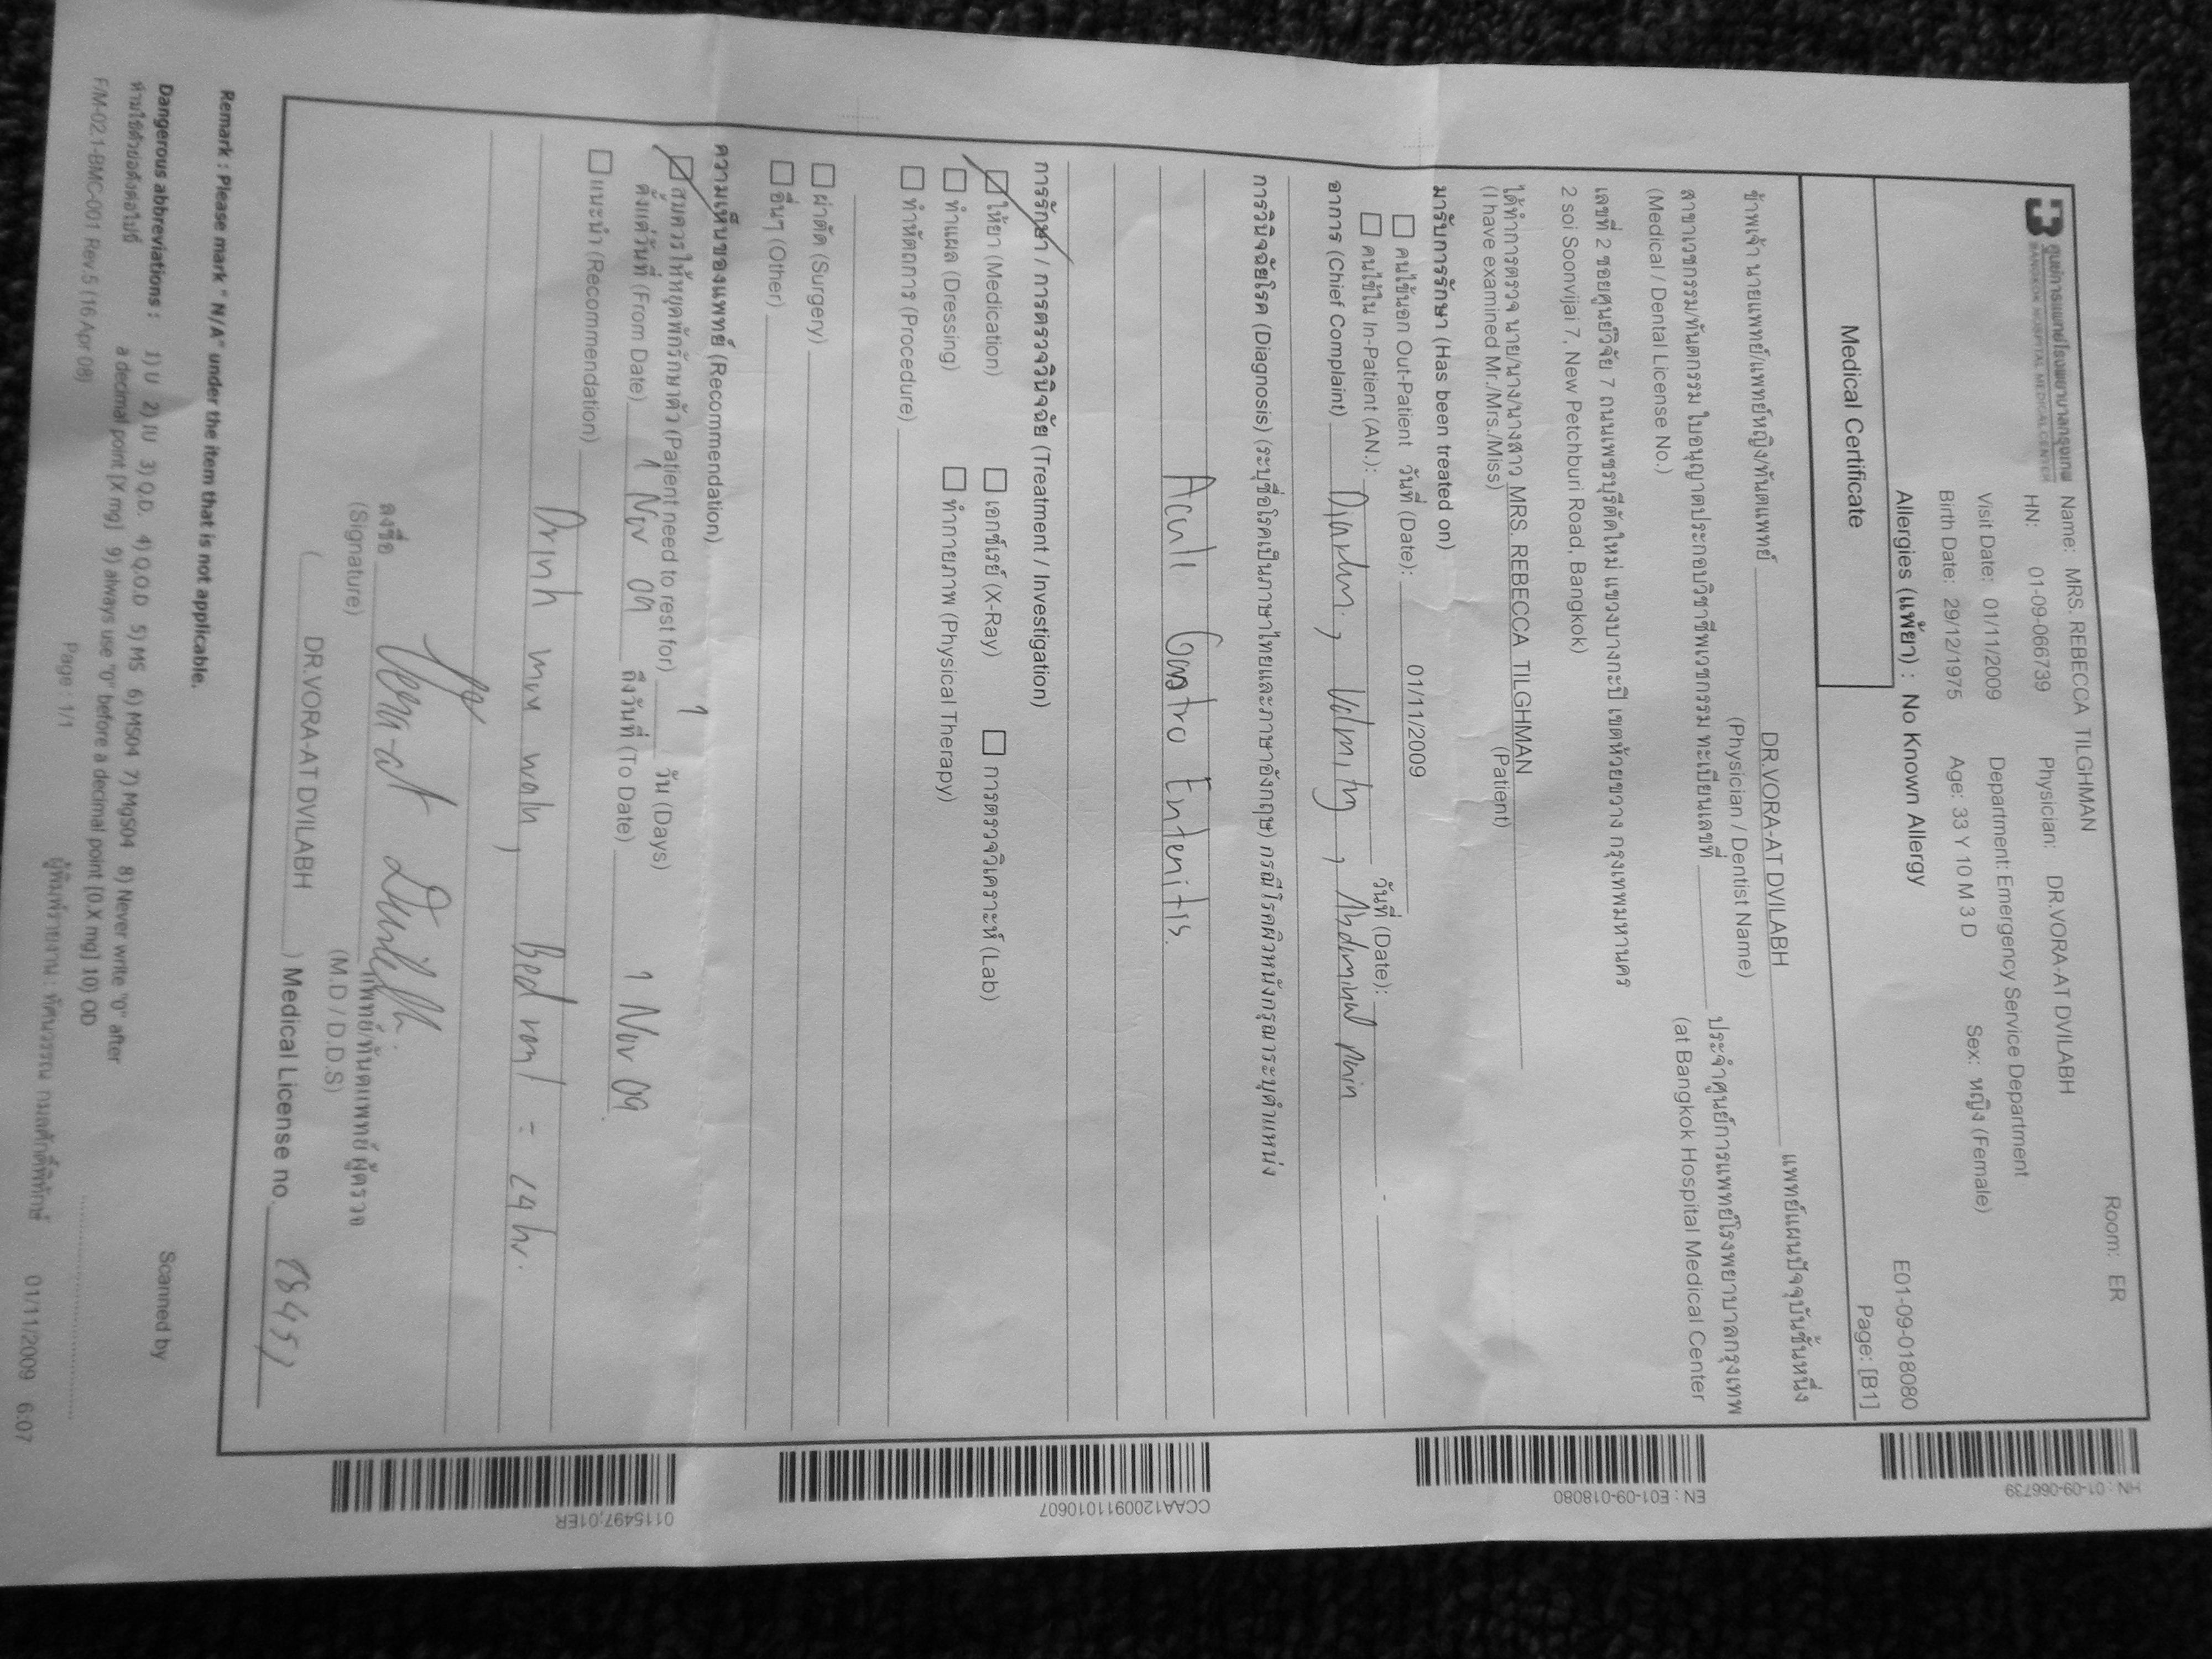 ศูนย์การแพทย์โรงพยาบาลกรุงเทพ
BANGKOK HOSPITAL MEDICAL CENTER
Name: MRS. REBECCA TILGHMAN Room: ER
HN: 01-09-066739 Physician: DR.VORA-AT DVILABH
Visit Date: 01/11/2009 Department: Emergency Service Department
Birth Date: 29/12/1975 Age: 33 Y 10 M 3 D Sex: หญิง (Female)
Allergies (แพ้ยา) : No Known Allergy E01-09-018080
Medical Certificate Page: [B1]
ข้าพเจ้า นายแพทย์/แพทย์หญิง/ทันตแพทย์ DR.VORA-AT DVILABH แพทย์แผนปัจจุบันชั้นหนึ่ง
(Physician / Dentist Name)
สาขาเวชกรรม/ทันตกรรม ใบอนุญาตประกอบวิชาชีพเวชกรรม ทะเบียนเลขที่ ประจำศูนย์การแพทย์โรงพยาบาลกรุงเทพ
(Medical / Dental License No.) (at Bangkok Hospital Medical Center
เลขที่ 2 ซอยศูนย์วิจัย 7 ถนนเพชรบุรีตัดใหม่ แขวงบางกะปิ เขตห้วยขวาง กรุงเทพมหานคร
2 soi Soonvijai 7, New Petchburi Road, Bangkok)
ได้ทำการตรวจ นาย/นาง/นางสาว MRS. REBECCA TILGHMAN
(I have examined Mr./Mrs./Miss) (Patient)
มารับการรักษา (Has been treated on)
☐ คนไข้นอก Out-Patient วันที่ (Date): 01/11/2009
☐ คนไข้ใน In-Patient (AN.): วันที่ (Date): -
อาการ (Chief Complaint) , , Abdominal pain
การวินิจฉัยโรค (Diagnosis) (ระบุชื่อโรคเป็นภาษาไทยและภาษาอังกฤษ) กรณีโรคผิวหนังกรุณาระบุตำแหน่ง
Gastro Enteritis.
การรักษา / การตรวจวินิจฉัย (Treatment / Investigation)
☑ ให้ยา (Medication) ☐ เอกซ์เรย์ (X-Ray) ☐ การตรวจวิเคราะห์ (Lab)
☐ ทำแผล (Dressing) ☐ ทำกายภาพ (Physical Therapy)
☐ ทำหัตถการ (Procedure)
☐ ผ่าตัด (Surgery)
☐ อื่นๆ (Other)
ความเห็นของแพทย์ (Recommendation)
☑ สมควรให้หยุดพักรักษาตัว (Patient need to rest for) 1 วัน (Days)
ตั้งแต่วันที่ (From Date) 1 Nov 09 ถึงวันที่ (To Date) 1 Nov 09.
☐ แนะนำ (Recommendation)
Drink , Bed = 24 hr.
ลงชื่อ Vora-at แพทย์/ทันตแพทย์ ผู้ตรวจ
(Signature) (M.D / D.D.S)
( DR.VORA-AT DVILABH ) Medical License no.
Remark : Please mark " N/A" under the item that is not applicable.
Dangerous abbreviations : 1) U 2) IU 3) Q.D. 4) Q.O.D 5) MS 6) MS04 7) MgS04 8) Never write "0" after
ห้ามใช้ตัวย่อดังต่อไปนี้ a decimal point [X mg] 9) always use "0" before a decimal point [0.X mg] 10) OD
Scanned by
F/M-02.1-BMC-001 Rev.5 (16 Apr 08)
Page : 1/1
ผู้พิมพ์รายงาน : 01/11/2009 6:07
HN : 01-09-066739
EN : E01-09-018080
CCAA1200911010607
0115497;01ER